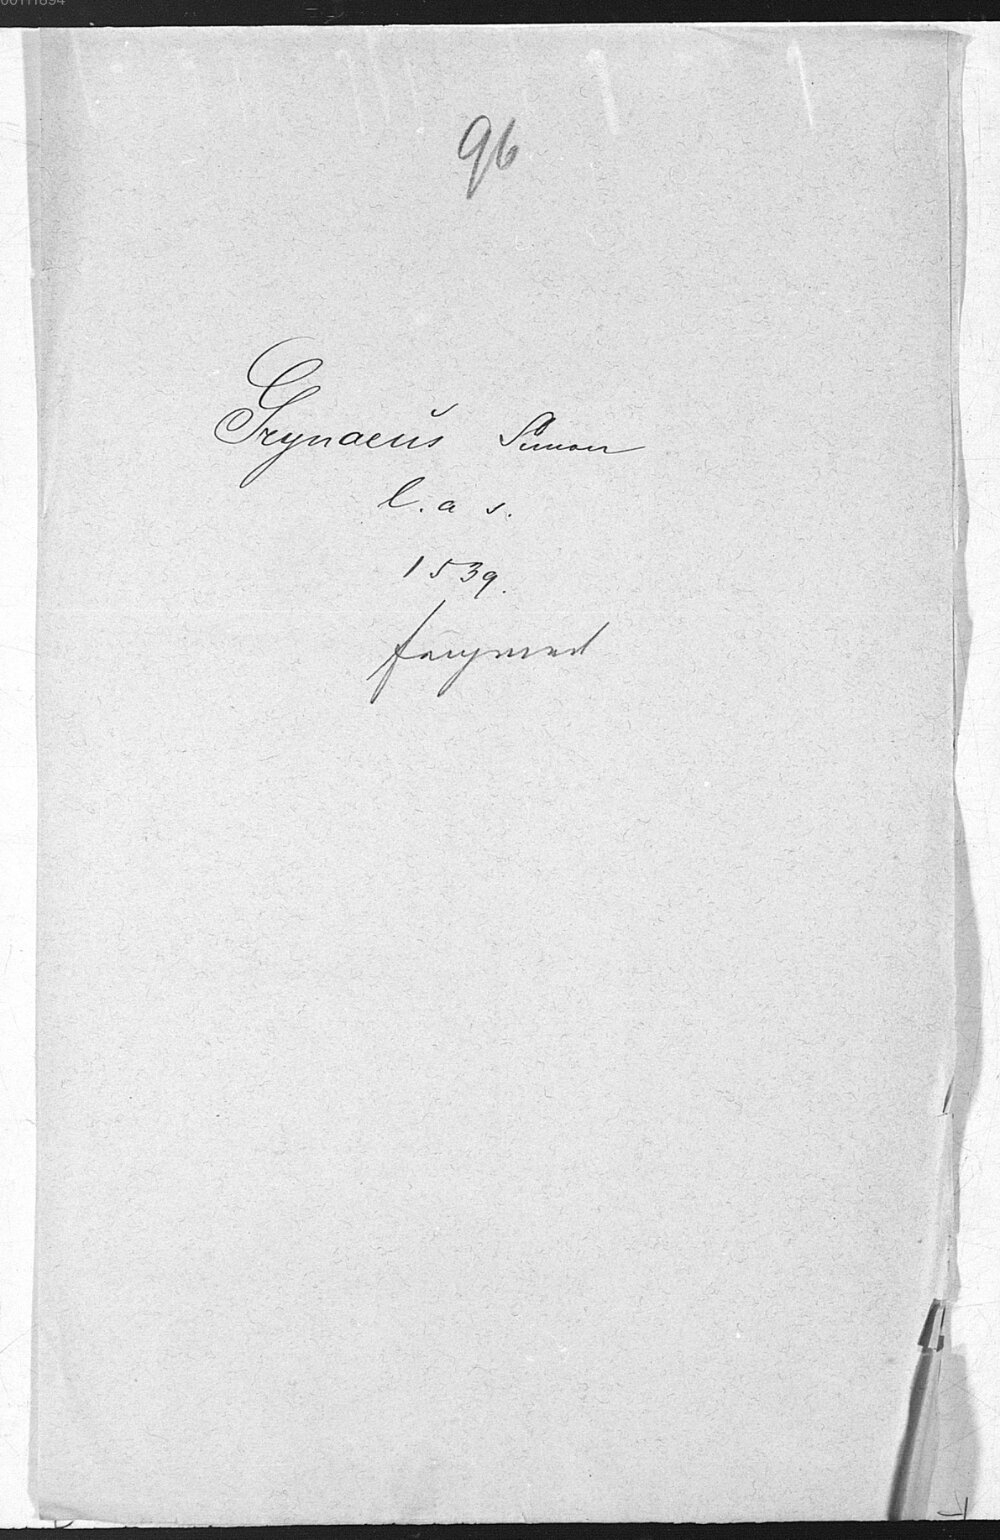 00111894
96
Grynaeus Simon
l. a s.
1539.
fragment